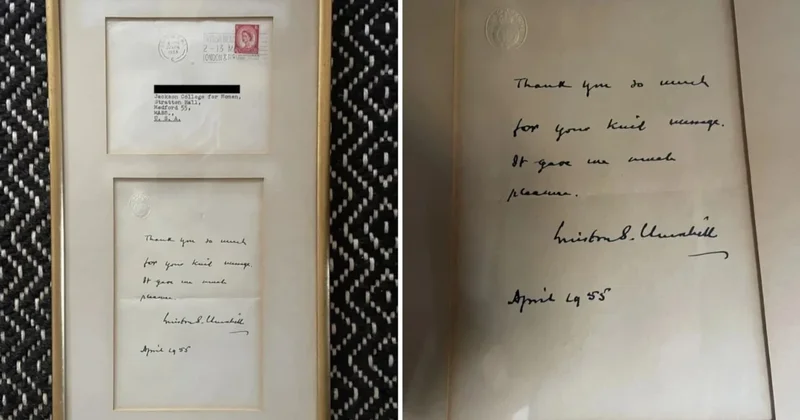 2-15 MAY
Jackson College for Women,
Stratton Hall,
Medford 55,
MASS.,
U.S.A.
Thank you so much
for your kind message.
It gave me much
pleasure.
Winston S. Churchill
April 1955
Thank you so much
for your kind message.
It gave me much
pleasure.
Winston S. Churchill
April 1955